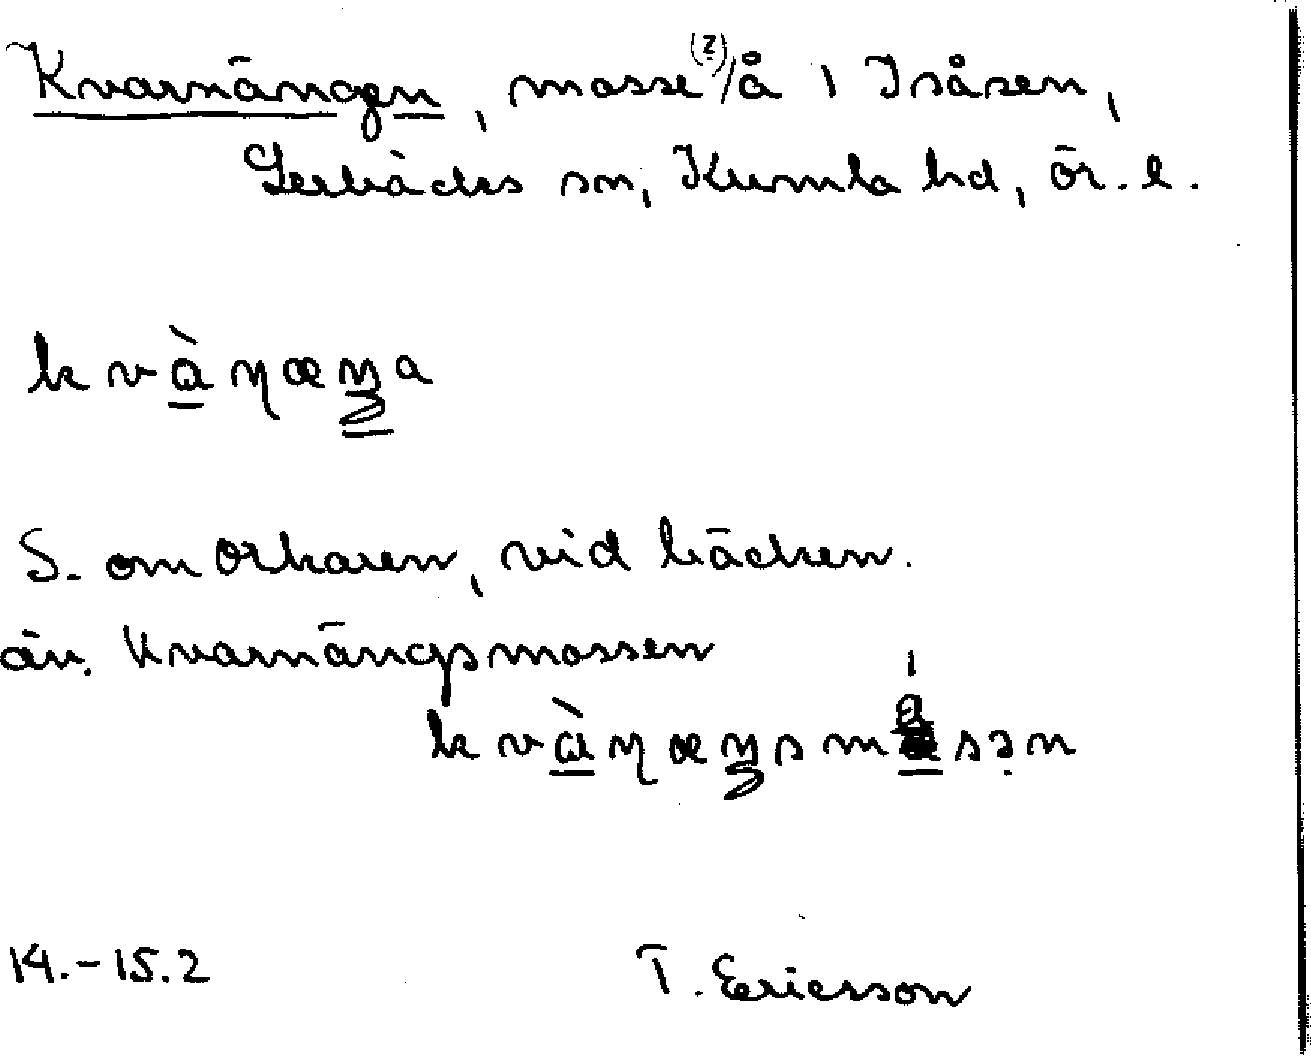 Kvarnängen, mosse(?)/å i Isåsen,
Lerbäcks sn, Kumla hd, ör. l.
kvàɳæŋa
S. om orkaren, vid bäcken.
äv. Kvarnängsmossen
kvàɳæŋsmåsən
14.-15.2
T. Ericsson